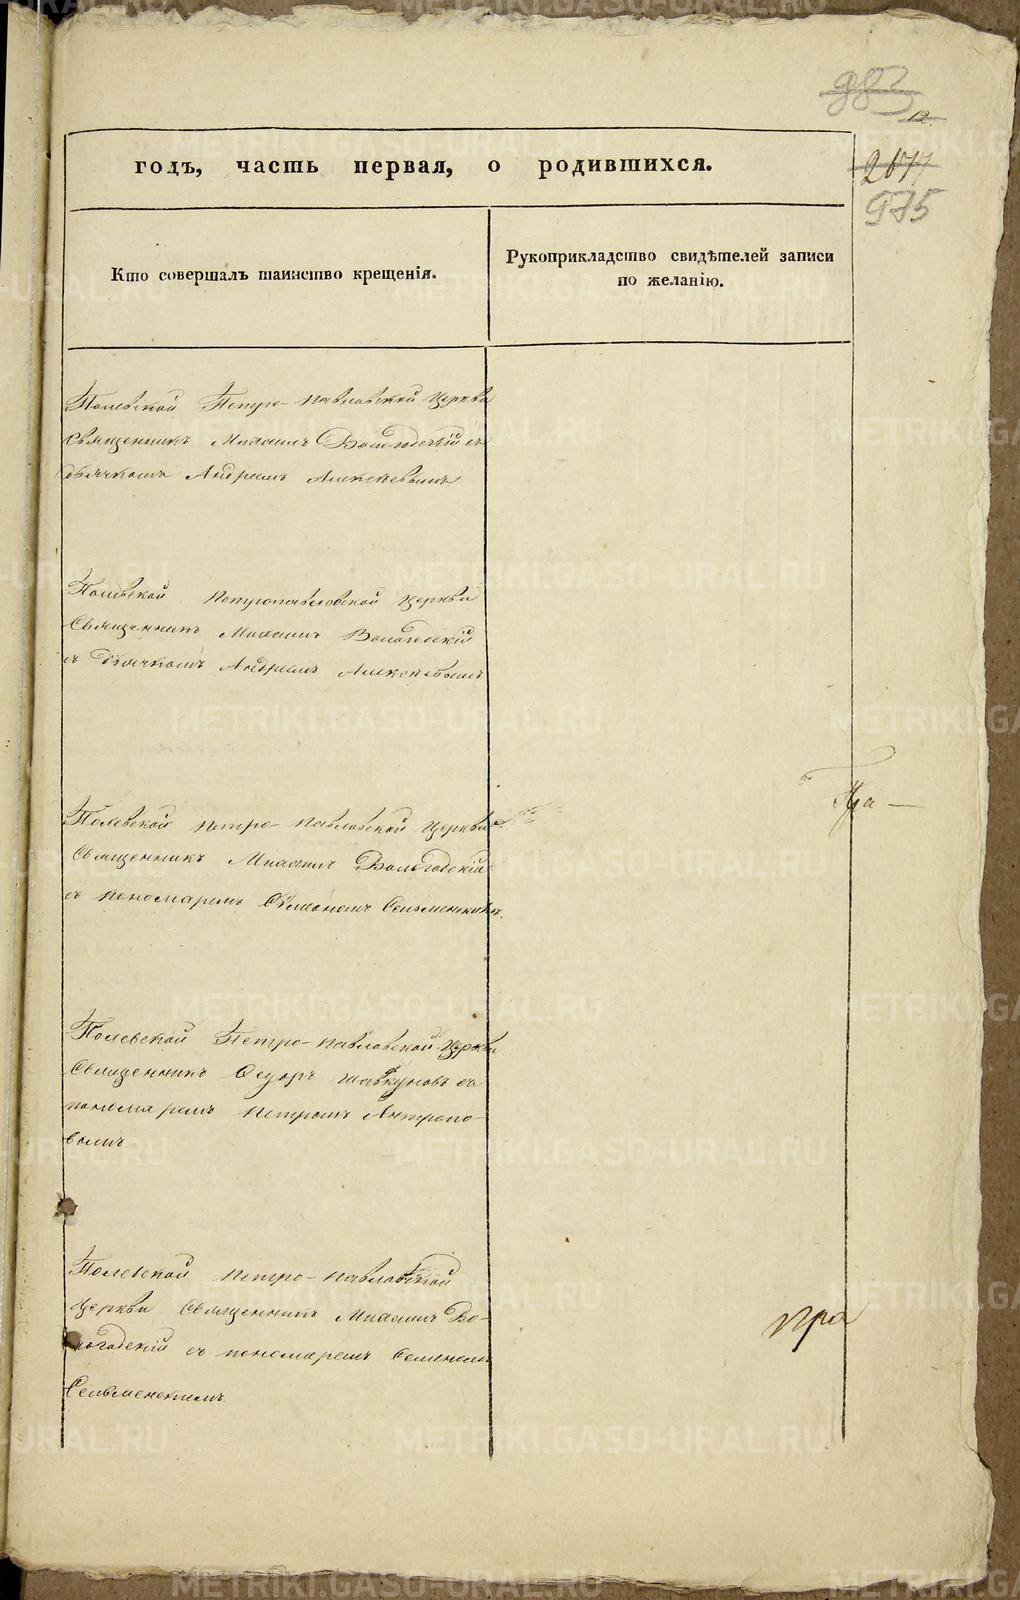 983
12.
2677
975
годъ, часть первая, о родившихся.
Кто совершалъ таинство крещенія.
Рукоприкладство свидѣтелей записи
по желанію.
Полевской Петро-Павловской Церкви
Священникъ Михаилъ Вологодскій съ
дьячкомъ Андреемъ Алексѣевымъ
Полевской Петропавловской Церкви
Священникъ Михаилъ Вологодскій
съ дьячкомъ Андреемъ Алексѣевымъ
Полевской Петро-Павловской Церкви
Священникъ Михаилъ Вологодскій
съ пономаремъ Семеномъ
Полевской Петро-Павловской Церкви
Священникъ Федоръ съ
пономаремъ Петромъ Антропо-
вымъ
Полевской Петро-Павловской
Церкви Священникъ Михаилъ Во-
логодскій съ пономаремъ Семеномъ
пра
METRIKI.GASO-URAL.RU